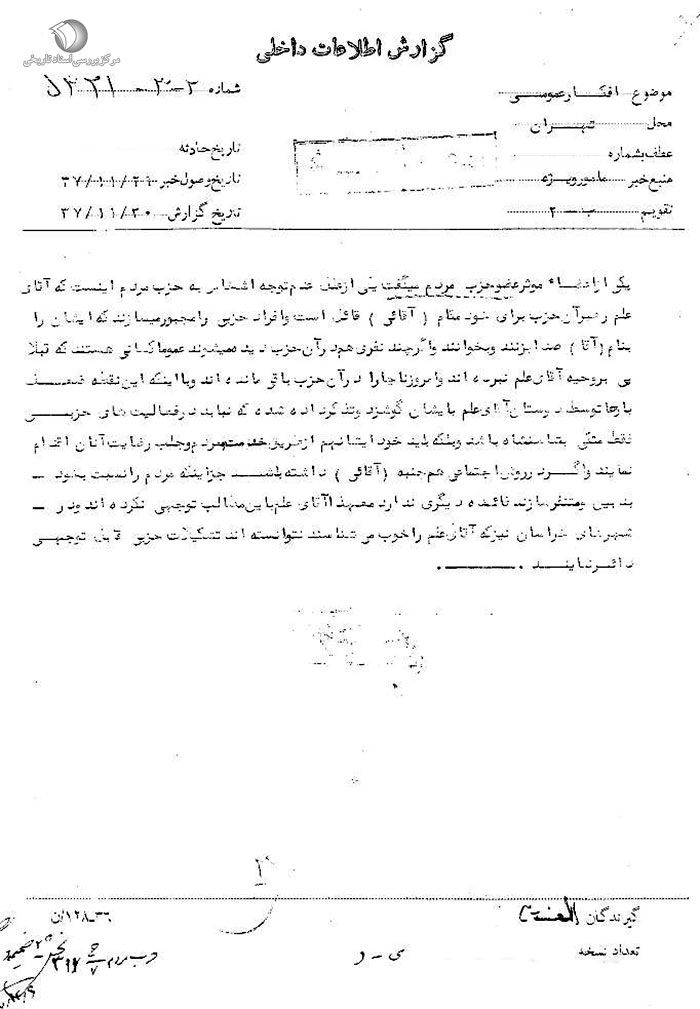 مرکز بررسی اسناد تاریخی
گزارش اطلاعات داخلی
موضوع افکار عمومی
شماره
محل تهران
عطف بشماره
تاریخ حادثه
منبع خبر مامور ویژه
تاریخ وصول خبر ۳۷/۱۱/۲۹
تقویم ب - ۲
تاریخ گزارش ۳۷/۱۱/۳۰
یکی از اعضاء موثر عضو حزب مردم میگفت یکی از علل عدم توجه اشخاص به حزب مردم اینست که آقای
علم رهبر آن حزب برای خود مقام (آقائی) قائل است و افراد حزبی را مجبور میسازند که ایشان را
بنام (آقا) صدا بزنند و بخوانند و اگر چند نفری هم در آن حزب دیده میشوند عموما کسانی هستند که قبلا
پی بروحیه آقای علم نبرده اند و امروز ناچارا در آن حزب باقی مانده اند و با اینکه این نقطه ضعف
بارها توسط دوستان آقای علم بایشان گوشزد و تذکر داده شده که نباید در فعالیت های حزبی
فقط متکی بقا باشد و بلکه باید خود ایشانهم از طریق خدمت بمردم و جلب رضایت آنان اقدام
نمایند و اگر در روش اجتماعی هم جنبه (آقائی) داشته باشد جز اینکه مردم را نسبت بخود -
بدبین و متنفر سازند فائده دیگری ندارد معهذا آقای علم باین مطالب توجهی نکرده اند و در -
شهرهای خراسان نیز که آقای علم را خوب می شناسند نتوانسته اند تشکیلات حزبی قابل توجهی
دائر نمایند .
گیرندگان
۳۶-۱۲۸/ن
تعداد نسخه